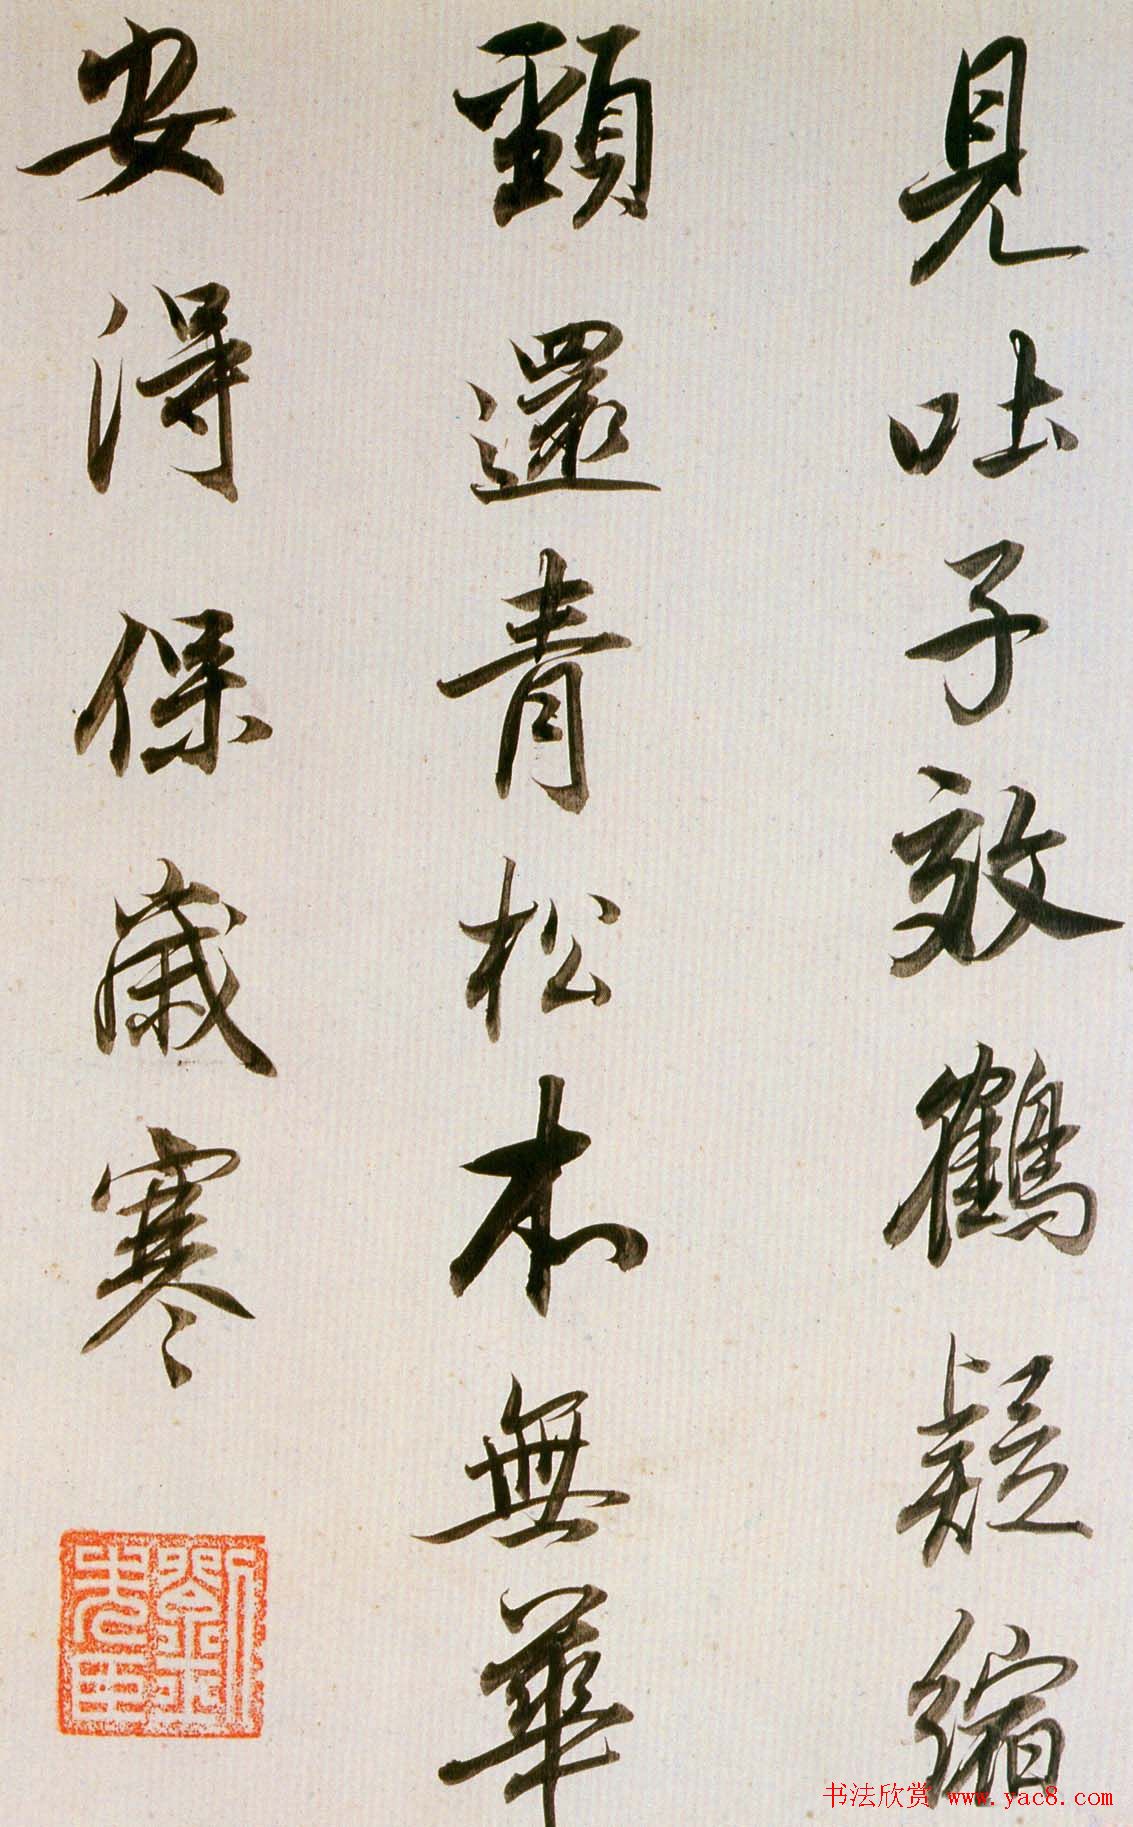 見吐子效鶴疑縮
頸還青松本無華
安得保歲寒
書法欣赏 www.yac8.com